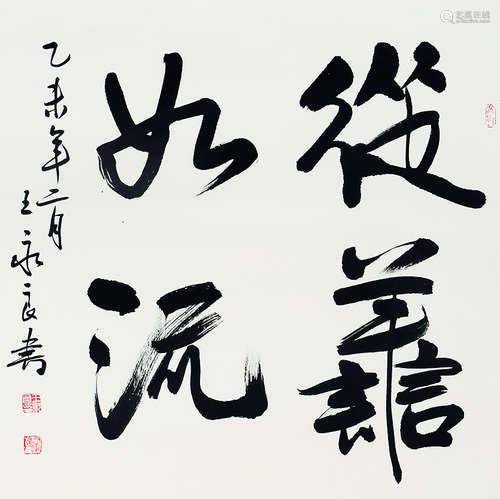 從譱
如流
乙未年二月王永良書